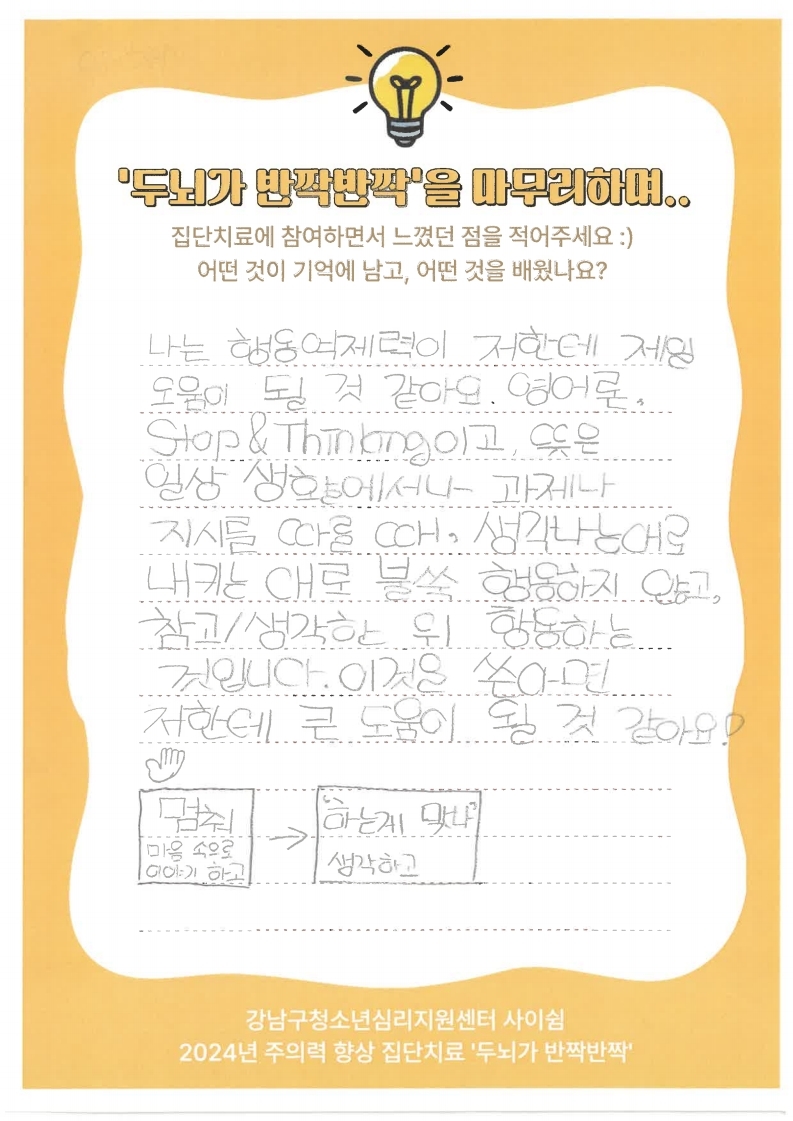 '두뇌가 반짝반짝'을 마무리하며..
집단치료에 참여하면서 느꼈던 점을 적어주세요 :)
어떤 것이 기억에 남고, 어떤 것을 배웠나요?
나는 행동억제력이 저한테 제일
도움이 될 것 같아요. 영어론,
Stop & Thinking이고, 뜻은
일상 생활에서나 과제나
지시를 따를 때, 생각나는대로
내키는 대로 불쑥 행동하지 않고,
참고//생각한 뒤 행동하는
것입니다. 이것을 쓴아면
저한테 큰 도움이 될 것 같아요!
멈춰
마음 속으로
이야기 하고
→
"하는게 맞나"
생각하고
강남구청소년심리지원센터 사이쉼
2024년 주의력 향상 집단치료 '두뇌가 반짝반짝'